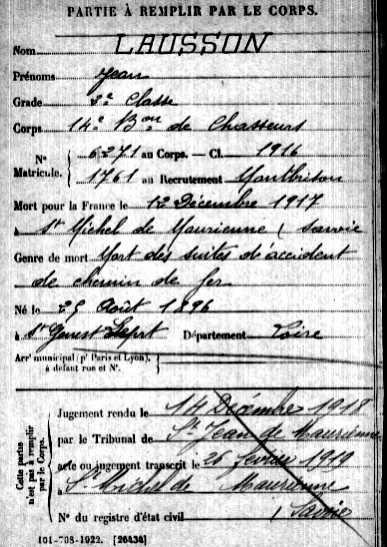 PARTIE À REMPLIR PAR LE CORPS.
Nom LAUSSON
Prénoms Jean
Grade 2e Classe
Corps 14e Bon de Chasseurs
N° Matricule. { 6271 au Corps. — Cl. 1916
1761 au Recrutement Montbrison
Mort pour la France le 12 Décembre 1917
à St Michel de Maurienne (Savoie
Genre de mort Mort des suites d'accident
de chemin de fer
Né le 25 Août 1896
à St Genest Lerpt Département Loire
Arrt municipal (pr Paris et Lyon),
à défaut rue et N°.
Cette partie n'est pas à remplir par le Corps.
Jugement rendu le 14 Décembre 1918
par le Tribunal de St Jean de Maurienne
acte ou jugement transcrit le 26 février 1919
à St Michel de Maurienne
N° du registre d'état civil (Savoie
101-708-1922. [26434]